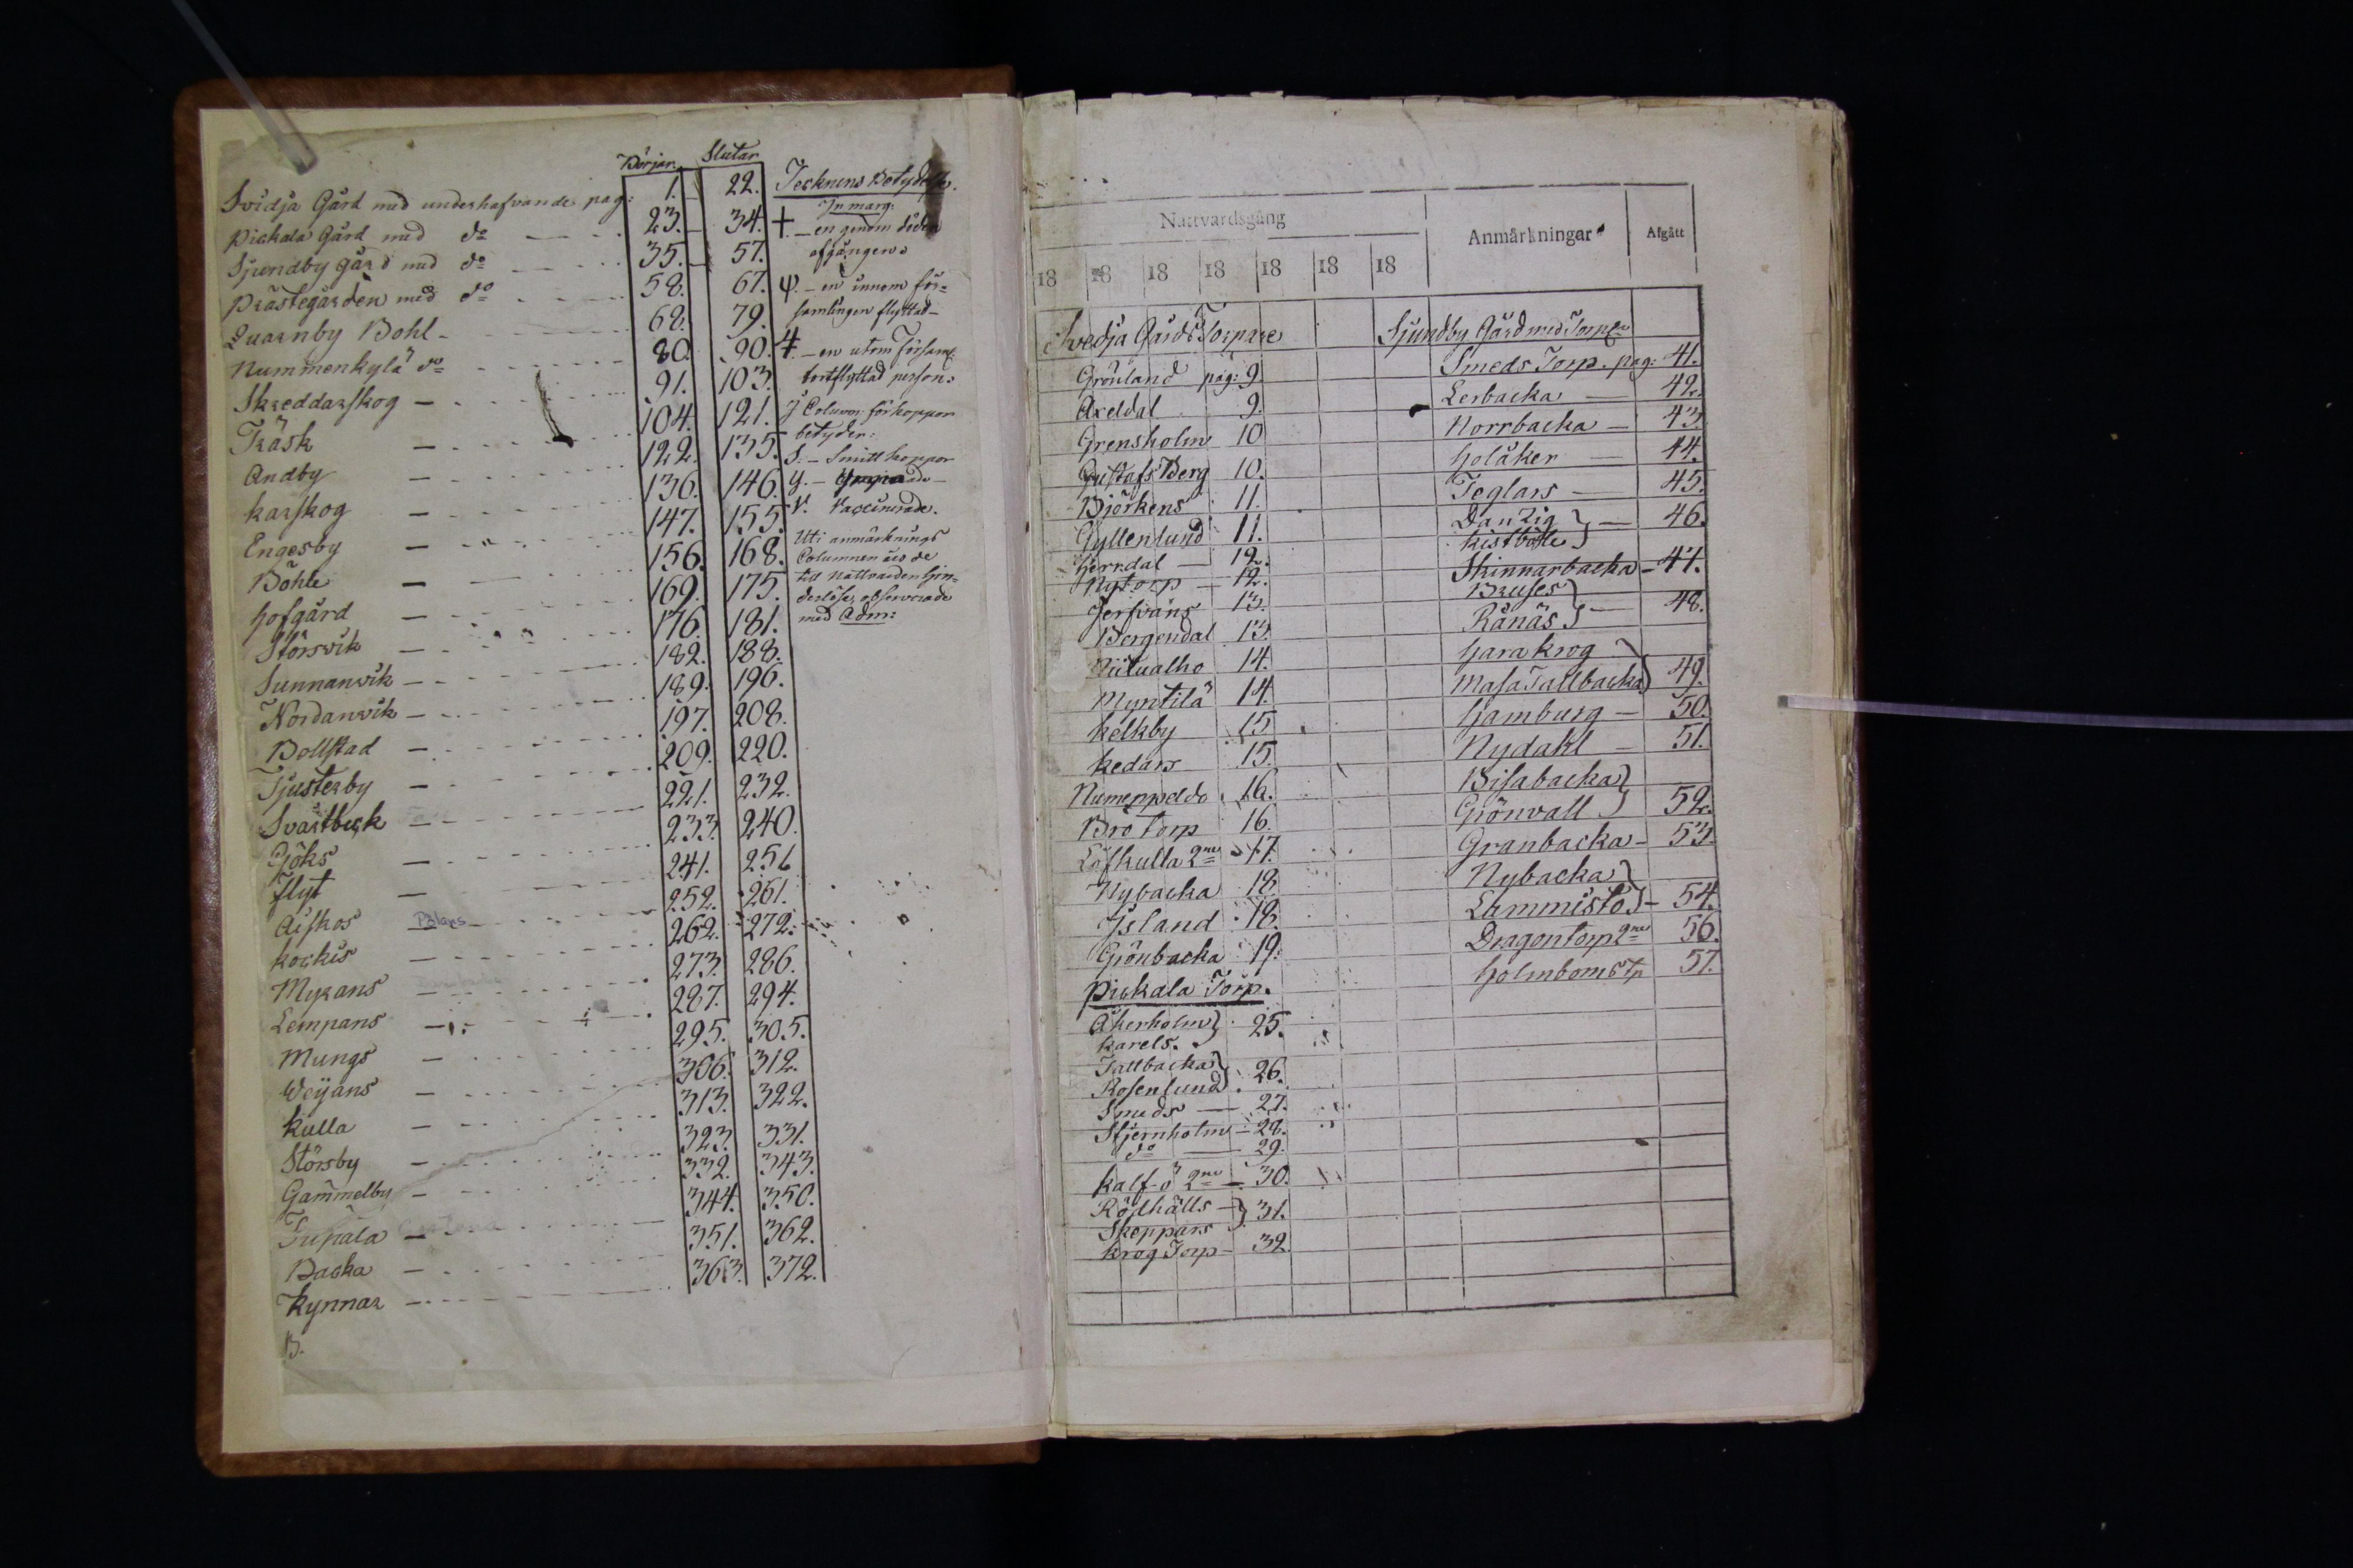 Börjar. Slutar
Svidja Gård med underhafvande pag: 1. 22.
Pickala Gård med do 23. 34.
Sjundby gård med do 35. 57.
Prästegården med do 58. 67.
Quarnby Bohl 68. 79.
Nummenkylä do 80. 90.
Skreddarskog 91. 103.
Träsk 104. 121.
Andby 122. 135.
Karskog 136. 146.
Engesby 147. 155.
Böhle 156. 168.
Hofgård 169. 175.
Störsvik 176. 181.
Sunnanvik 182. 188.
Nordanvik 189. 196.
Bollstad 197. 208.
Tjusterby 209. 220.
Svartbeck 221. 232.
Göks 233. 240.
Flyt 241. 251
Aiskos Bläns 252. 261.
Kockis 262. 272.
Myrans 273. 286.
Lempans 287. 294.
Mungs 295. 305.
Weijans 306. 312.
Kulla 313. 322.
Störsby 323. 331.
Gammelby 332. 343.
Tupala 344. 350.
Backa 351. 362.
Kynnar 363. 372.
B.
Tecknens Betydelse.
In marg:
+. – en genom döden
afgången.
φ. – en innom för=
samlingen flyttad –
4. – en utom församl.
bortflyttad person.
J Column för koppor
betyder:
S. – Smitt koppor
Y. – Ympade
V. Vaccinerade.
Uti anmärknings
Columnen äro de
till Nattvarden hin=
derlöse observerade
med Adm:
Nattvardsgång Anmärkningar Afgått
18 18 18 18 18 18 18
Svidja Gårds Torpare
Grönland pag: 9.
Axeldal 9.
Grensholm 10
Gustafs Berg 10.
Björkens 11.
Gyllenlund 11.
Herrdal – 12.
Nytorp – 12.
Jerfväns 13.
Bergendal 13.
Niitualho 14.
Myntilä 14.
Kelkby 15
Kedars 15.
Numenpeldo 16.
Bro torp 16.
Löfkulla 2ne 17.
Nybacka 18.
Jsland 18.
Grönbacka 19.
Pickala Torp.
Åkerholm } 25.
Karels.
Tallbacka } 26.
Rosenlund
Smeds – 27.
Stjernholm – 28.
do – 29.
Kalf-ö 2ne – 30.
Rödhälls – } 31.
Skeppars
Krog Torp – 32
Sjundby Gård med Torp
Smeds Torp. pag: 41.
Lerbacka – 42.
Norrbacka – 43.
Holåker – 44.
Teglars – 45.
Danzig } – 46.
Kistböle
Skinnarbacka – 47.
Bruses } – 48.
Rånäs
Harakrog
Masa Tallbacka } 49.
Hamburg – 50.
Nydahl – 51.
Bisabacka }
Grönvall 52.
Granbacka – 53.
Nybacka }
Lammistö – 54.
Dragontorp 2ne 56.
Holmboms Tp 57.